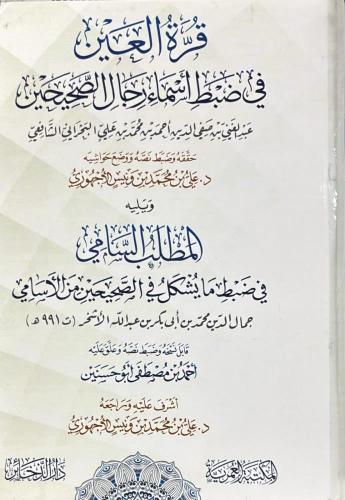 قرة العين
في ضبط أسماء رجال الصحيحين
عبد الغني بن صفي الدين أحمد بن محمد بن علي البحراني الشافعي
حققه وضبط نصه ووضع حواشيه
د. علي بن محمد بن ونيس الأجهوري
ويليه
المطلب السامي
في ضبط ما يشكل في الصحيحين من الأسامي
جمال الدين محمد بن أبي بكر بن عبد الله الأشخر (ت ٩٩١ هـ)
قابل نسخه وضبط نصه وعلق عليه
أحمد بن مصطفى أبو حسنين
أشرف عليه وراجعه
د. علي بن محمد بن ونيس الأجهوري
المكتبة العمرية
دار الذخائر